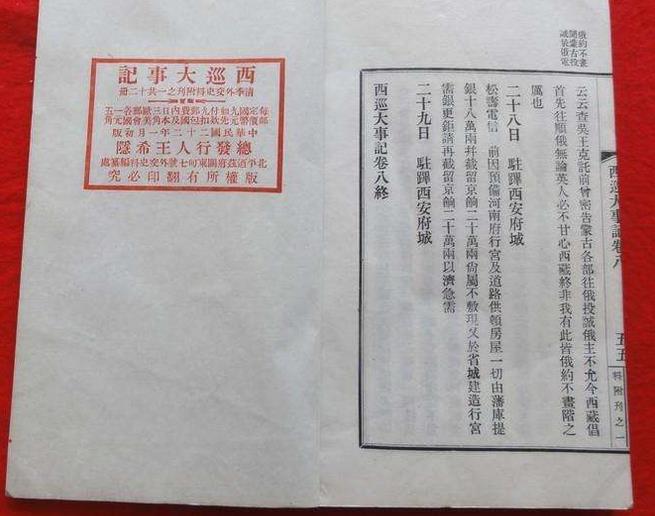 俄約不畫
開蒙古投
誠於俄電
云云查吳王克託前曾密告蒙古各部往俄投誠俄主不允今西藏倡
首先往順俄無論英人必不甘心西藏終非我有此皆俄約不畫階之
厲也
二十八日　駐蹕西安府城
松壽電信　前因預備河南府行宮及道路供頓房屋一切由藩庫提
銀十八萬兩幷截留京餉二十萬兩尙屬不敷現又於省城建造行宮
需銀更鉅請再截留京餉二十萬兩以濟急需
二十九日　駐蹕西安府城
西巡大事記卷八終
西巡大事記卷八
五五
料附刊之一
西巡大事記
淸季外交史料附刊之一共十二冊
每定國九如付九郵費內日三歐郵各一五
中華民國二十二年一月初版
總發行人王希隱
北平酒茲府關東甸七號外交史料編纂處
版權所有翻印必究